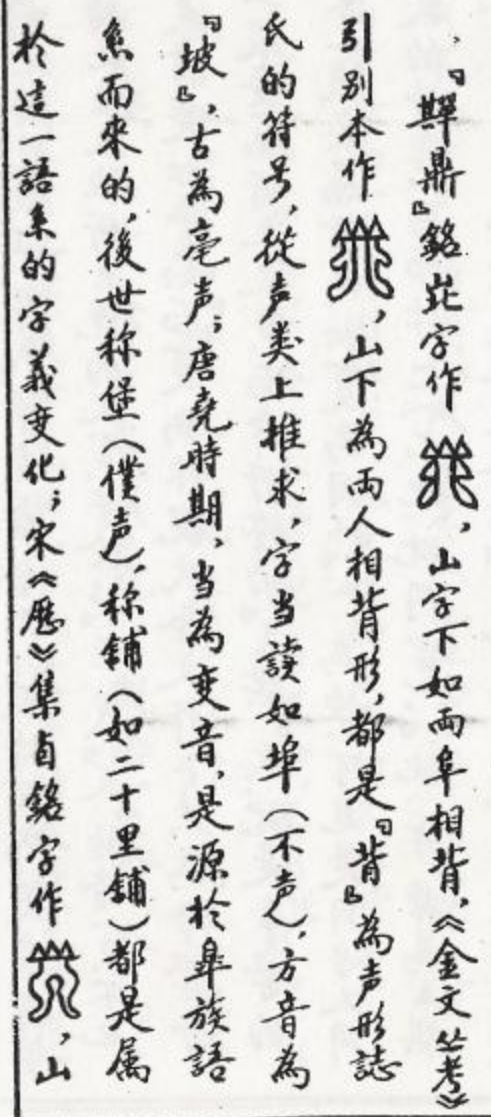 『㠱鼎』銘茈字作，山字下如兩阜相背，《金文丛考》
引别本作，山下為兩人相背形，都是『背』為声形誌
氏的符号，從声类上推求，字当讀如埠（不声），方音為
『坡』，古為亳声；唐尧時期，当為变音，是源於皐族語
系而來的，後世称堡（僕声），称鋪（如二十里鋪）都是属
於這一語系的字義变化；宋《歷》集卣銘字作，山